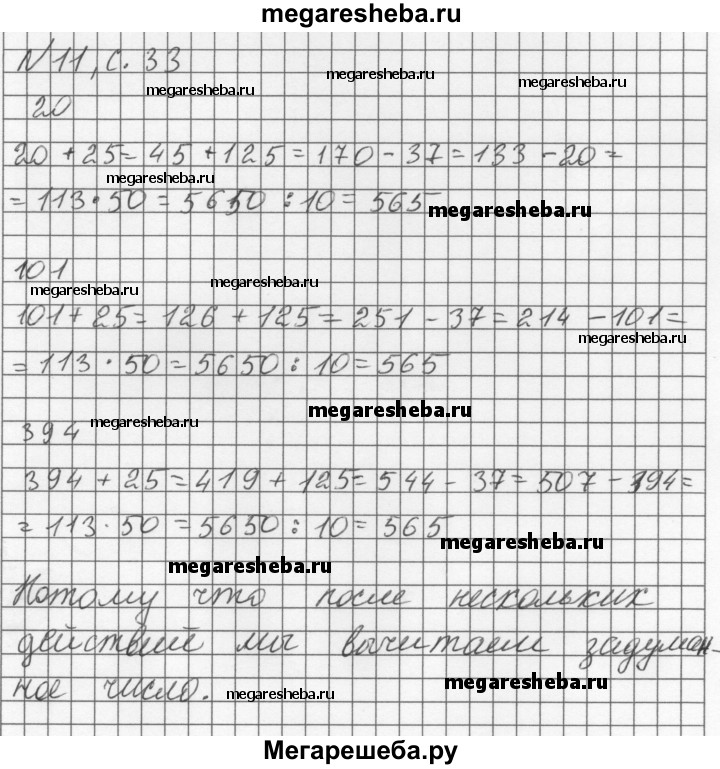 megaresheba.ru
№11, с. 33
megaresheba.ru megaresheba.ru megaresheba.ru
20
20 + 25 = 45 + 125 = 170 - 37 = 133 - 20 =
megaresheba.ru
= 113 · 50 = 5650 : 10 = 565
megaresheba.ru
101
megaresheba.ru megaresheba.ru
101 + 25 = 126 + 125 = 251 - 37 = 214 - 101 =
megaresheba.ru
= 113 · 50 = 5650 : 10 = 565
megaresheba.ru
394 megaresheba.ru
394 + 25 = 419 + 125 = 544 - 37 = 507 - 394 =
= 113 · 50 = 5650 : 10 = 565
megaresheba.ru
megaresheba.ru
Потому что после нескольких
действий мы вычитаем задуман-
ное число. megaresheba.ru megaresheba.ru
Мегарешеба.ру